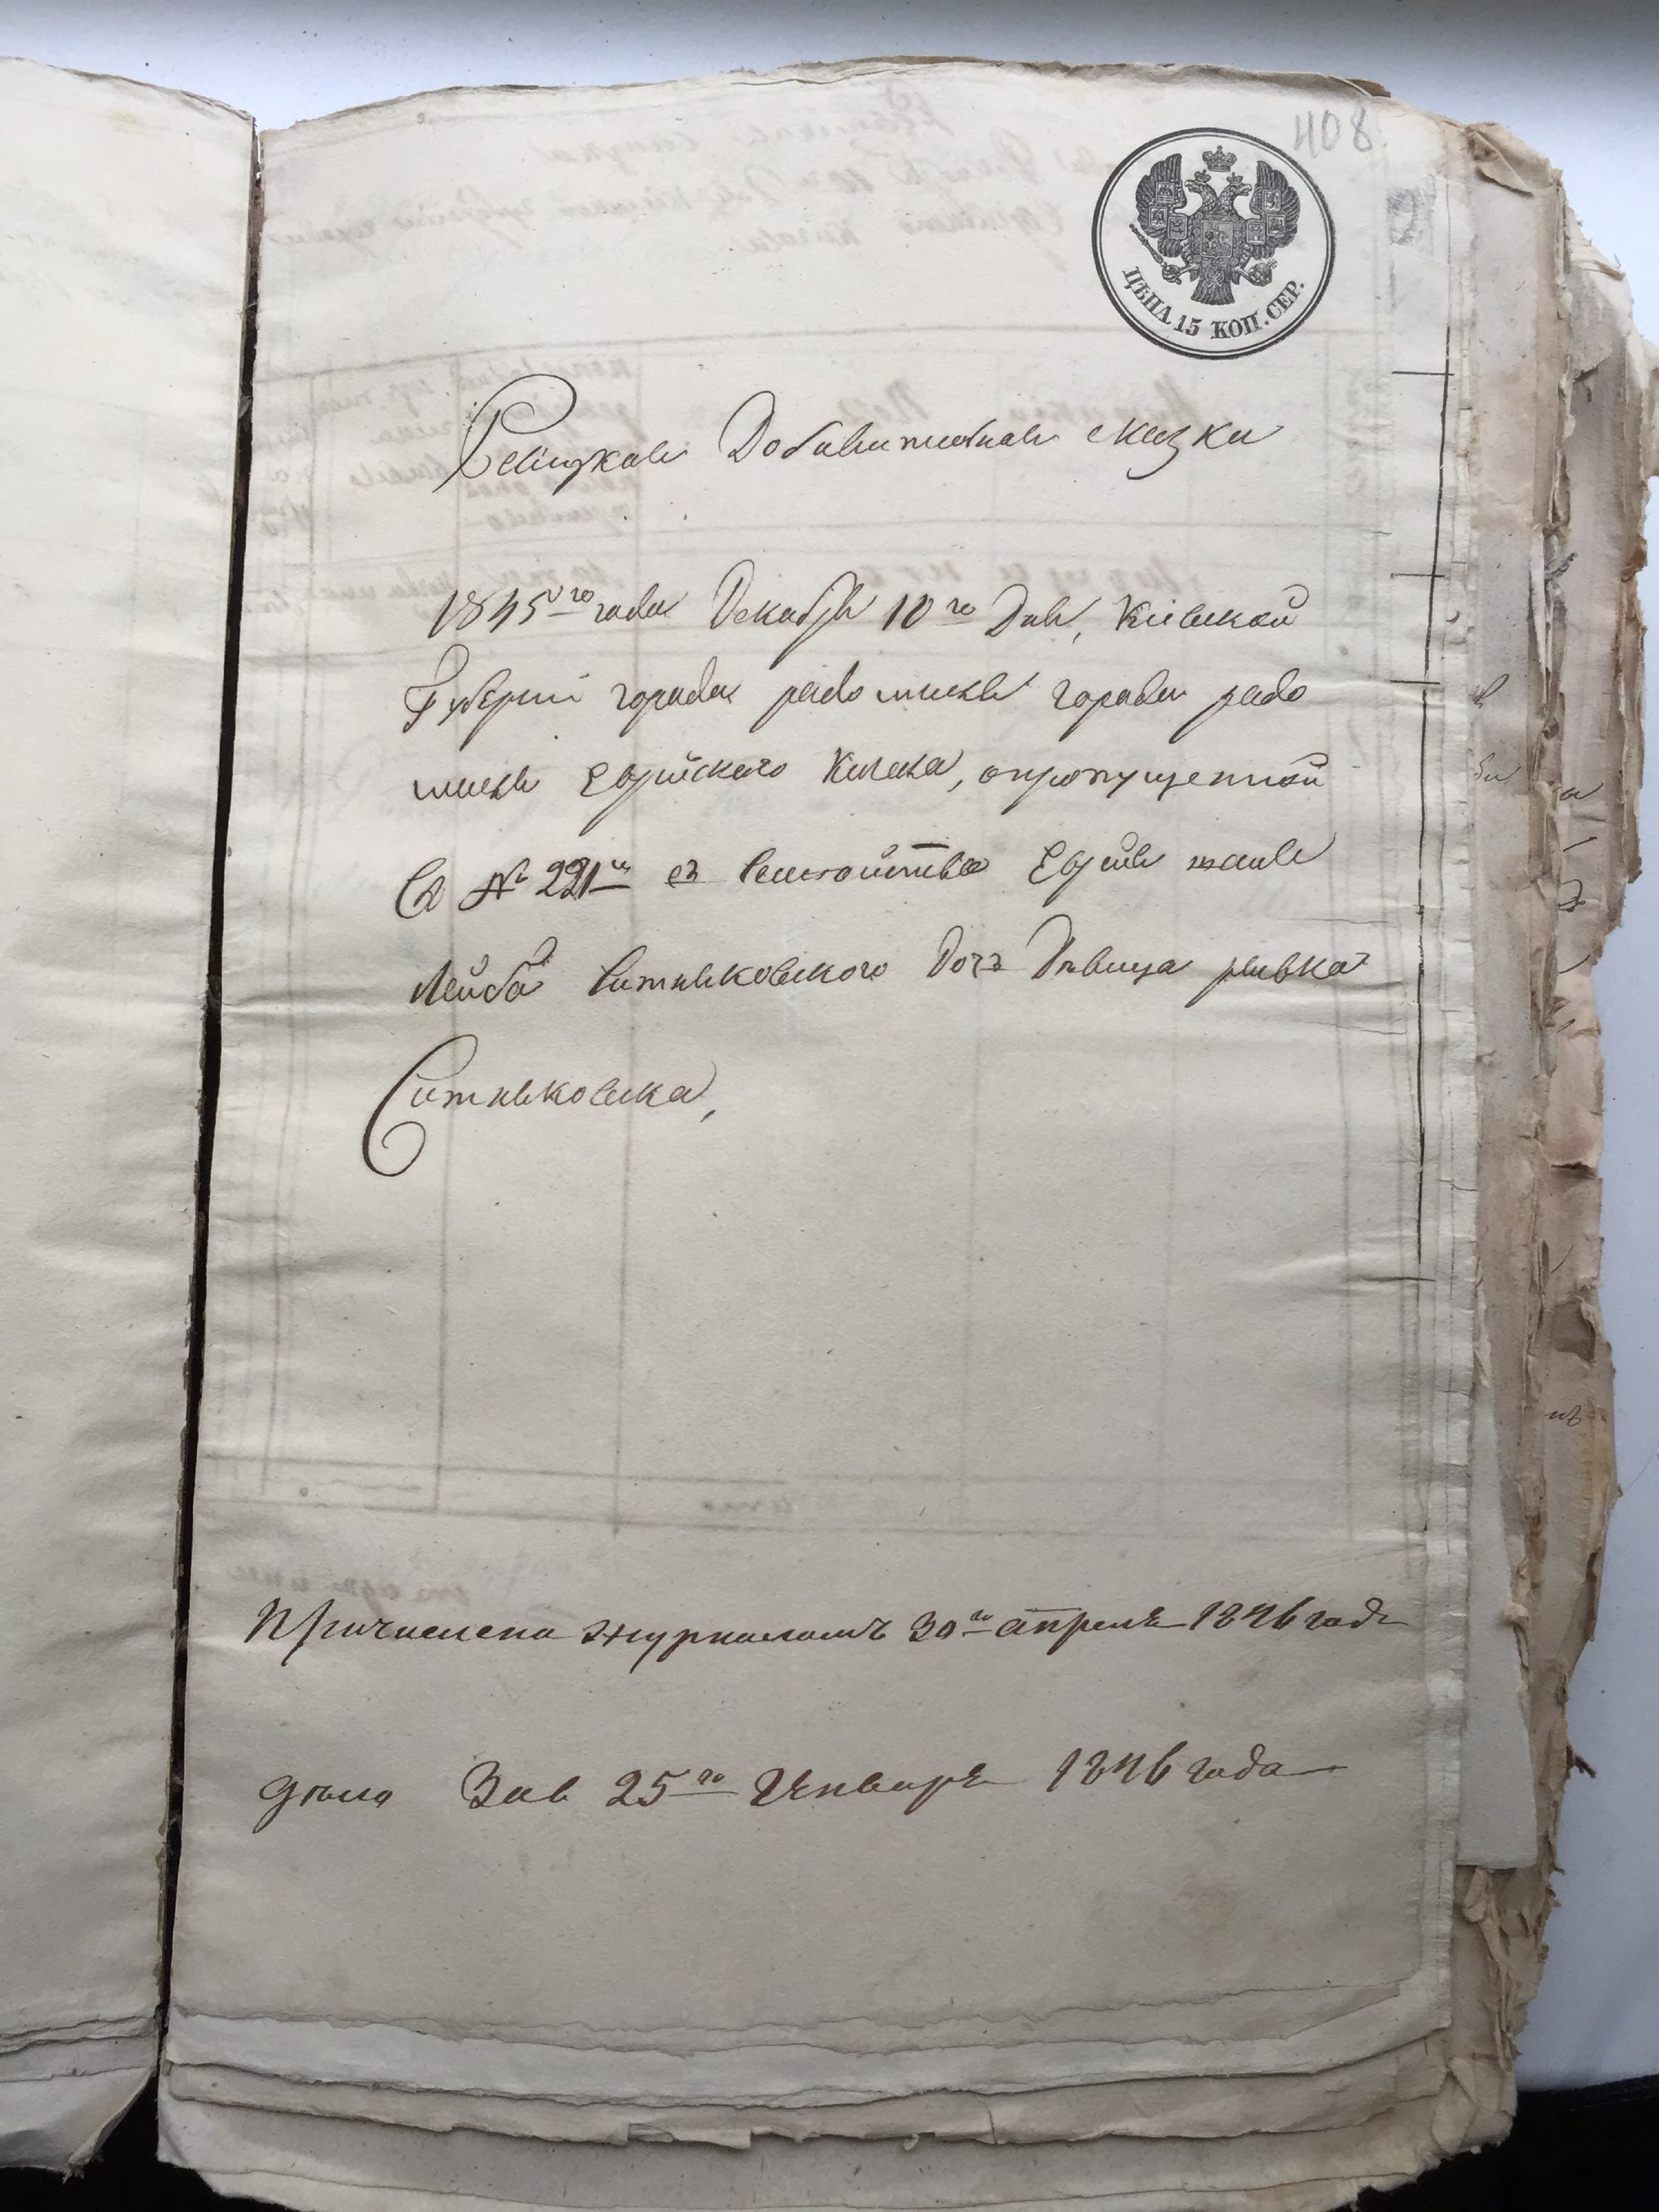 408
ЦѢНА 15 КОП. СЕР.
Ревизкая Добавительная сказка
1845го года Декабря 10го Дня, Кіевской
Губерніи города радомысля города радо
мысля Еврейского Кагала, опропущенной
Въ № 221м въ Семействѣ Еврея
Лейба Ситняковского Дочъ Дѣвица ривка
Ситняковска,
Причислена журналомъ 30го апреля 1846 года
дѣло 25го Генваря 1846 года